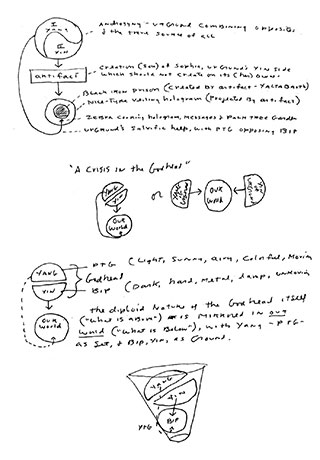 I
Yang
II
Yin
Androgyny - Urgrund combining opposites
& the true source of all
artifact
creation (son) of Sophia, urgrund's Yin side
which should not create on its (her) own.
Black Iron Prison (created by artifact - Yaltabaoth)
Nice-Type Veiling hologram (Projected by artifact)
Zebra coming, hologram, messages & Palm Tree Garden
urgrund's salvific help, with PTG opposing BIP
"A Crisis in the Godhead"
Yang
our
world
or
our
world
Yang
Yin
our
world
Godhead
PTG (Light, Sunny, airy, Colorful, Moving
BIP (Dark, hard, Metal, damp, unmoving
the diploid nature of the Godhead itself
("What is above") is mirrored in our
world ("What is Below"), with Yang - PTG -
as Set, & BIP, Yin, as Ground.
Yang
Yin
BIP
PTG